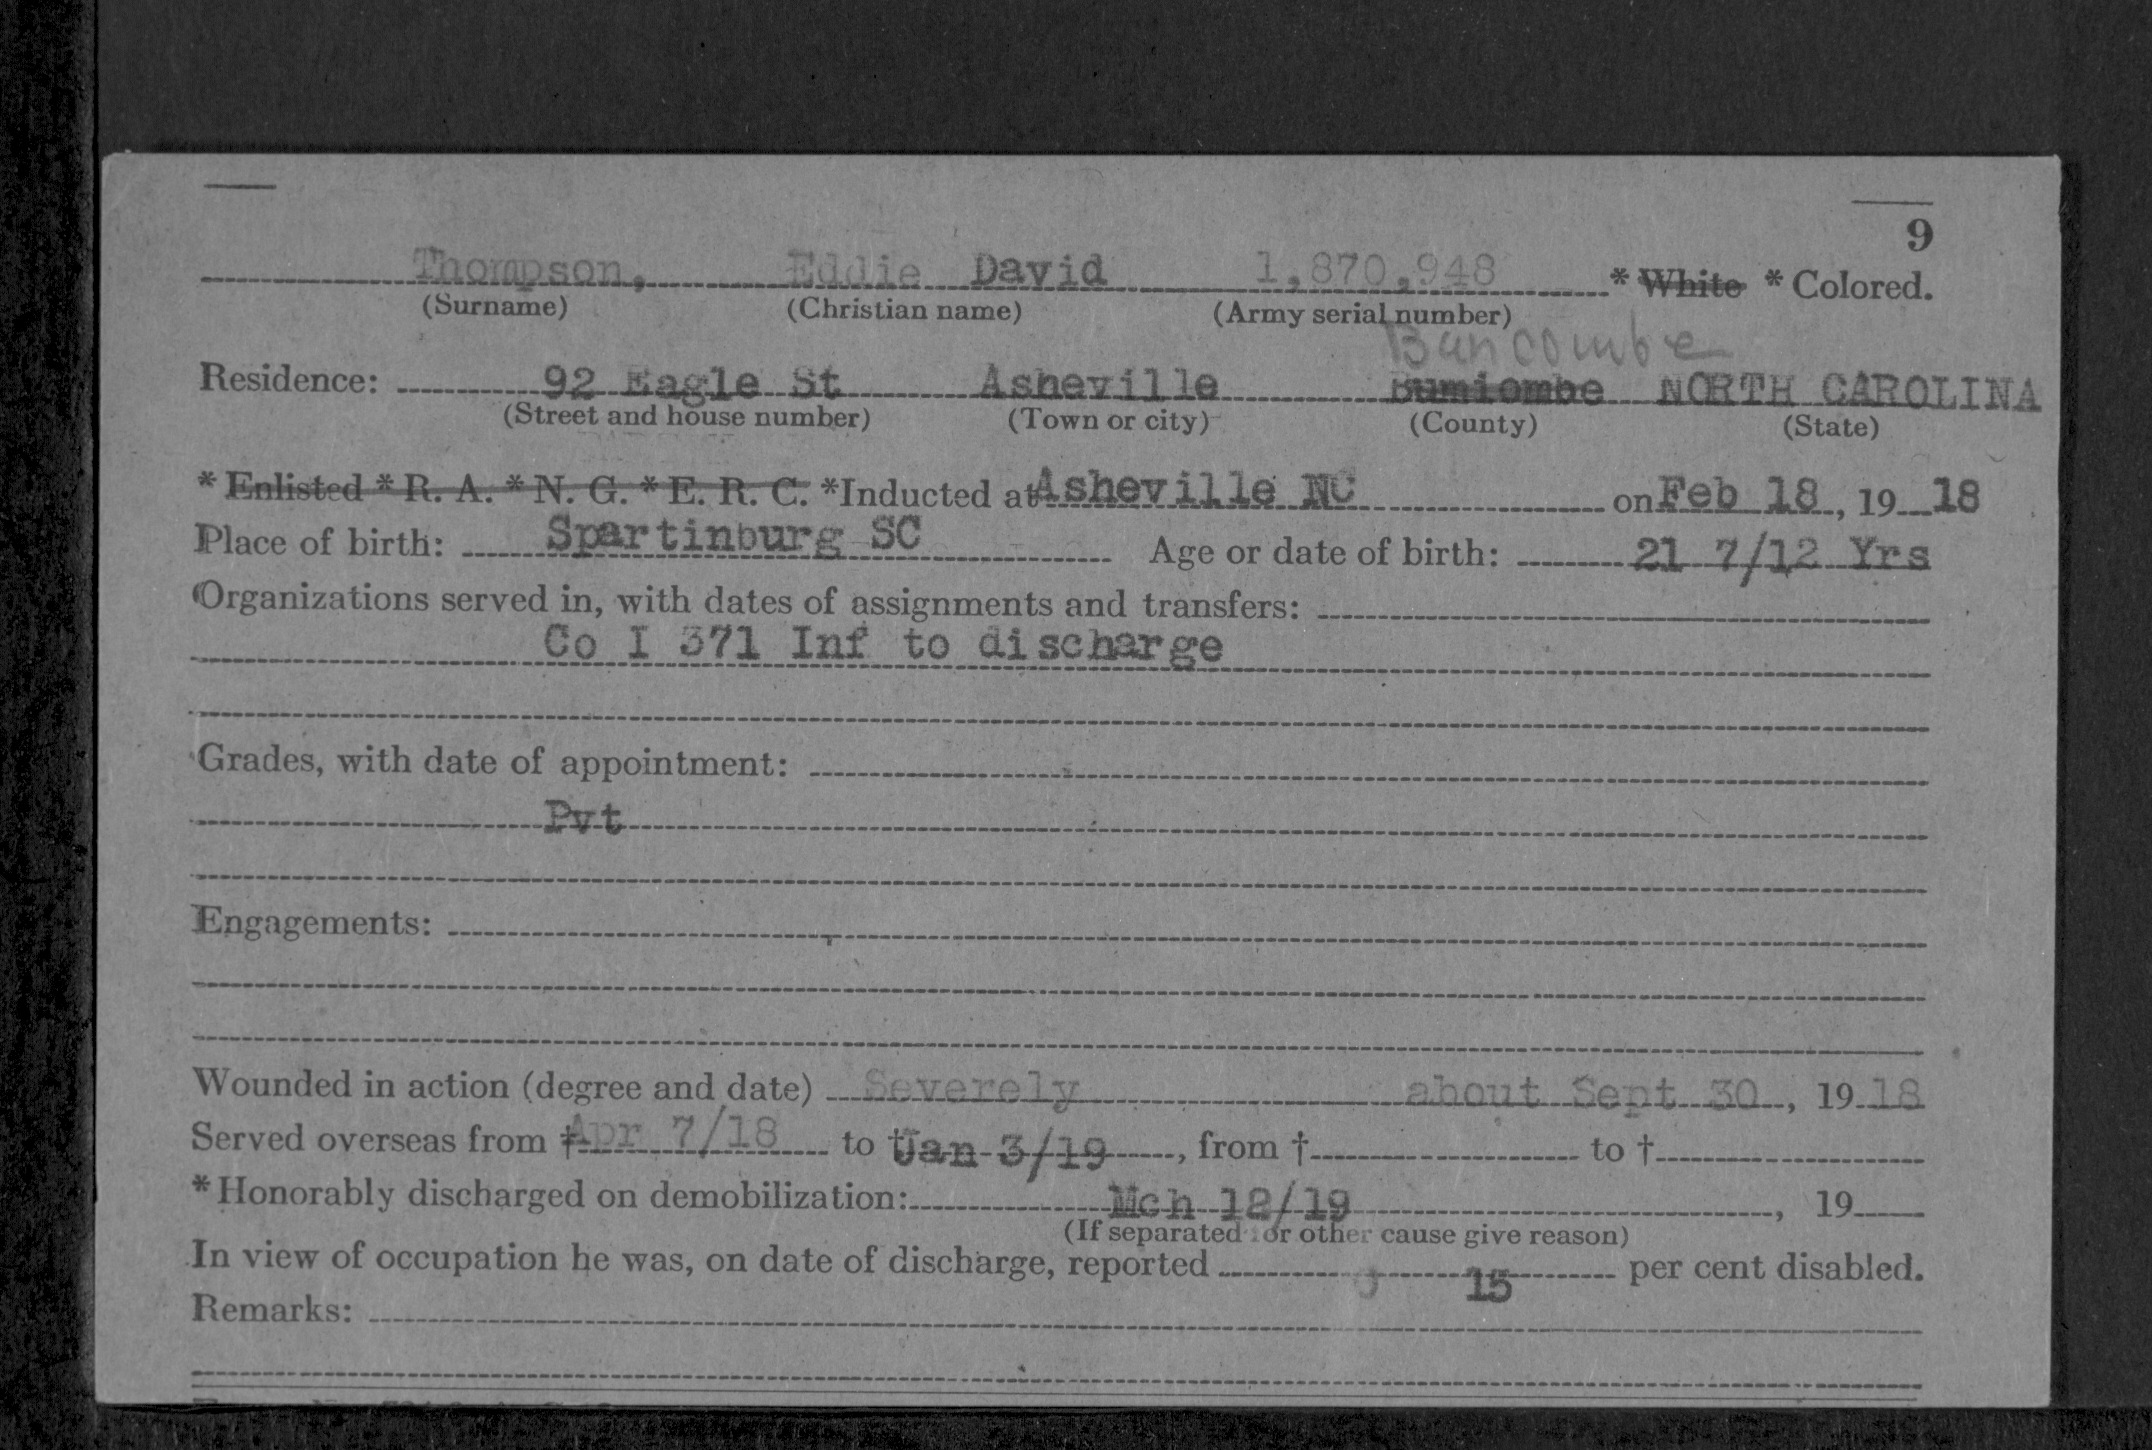 9
Thompson, Eddie David 1,870,948 * White * Colored.
(Surname) (Christian name) (Army serial number)
Buncombe
Residence: 92 Eagle St Asheville Bumiombe NORTH CAROLINA
(Street and house number) (Town or city) (County) (State)
* Enlisted * R. A. * N. G. * E. R. C. *Inducted at Asheville NC on Feb 18, 19 18
Place of birth: Spartinburg SC Age or date of birth: 21 7/12 Yrs
Organizations served in, with dates of assignments and transfers:
Co I 371 Inf to discharge
Grades, with date of appointment:
Pvt
Engagements:
Wounded in action (degree and date) Severely about Sept 30, 19 18
Served overseas from † Apr 7/18 to † Jan 3/19, from † to †
* Honorably discharged on demobilization: Mch 12/19, 19
(If separated for other cause give reason)
In view of occupation he was, on date of discharge, reported 15 per cent disabled.
Remarks: